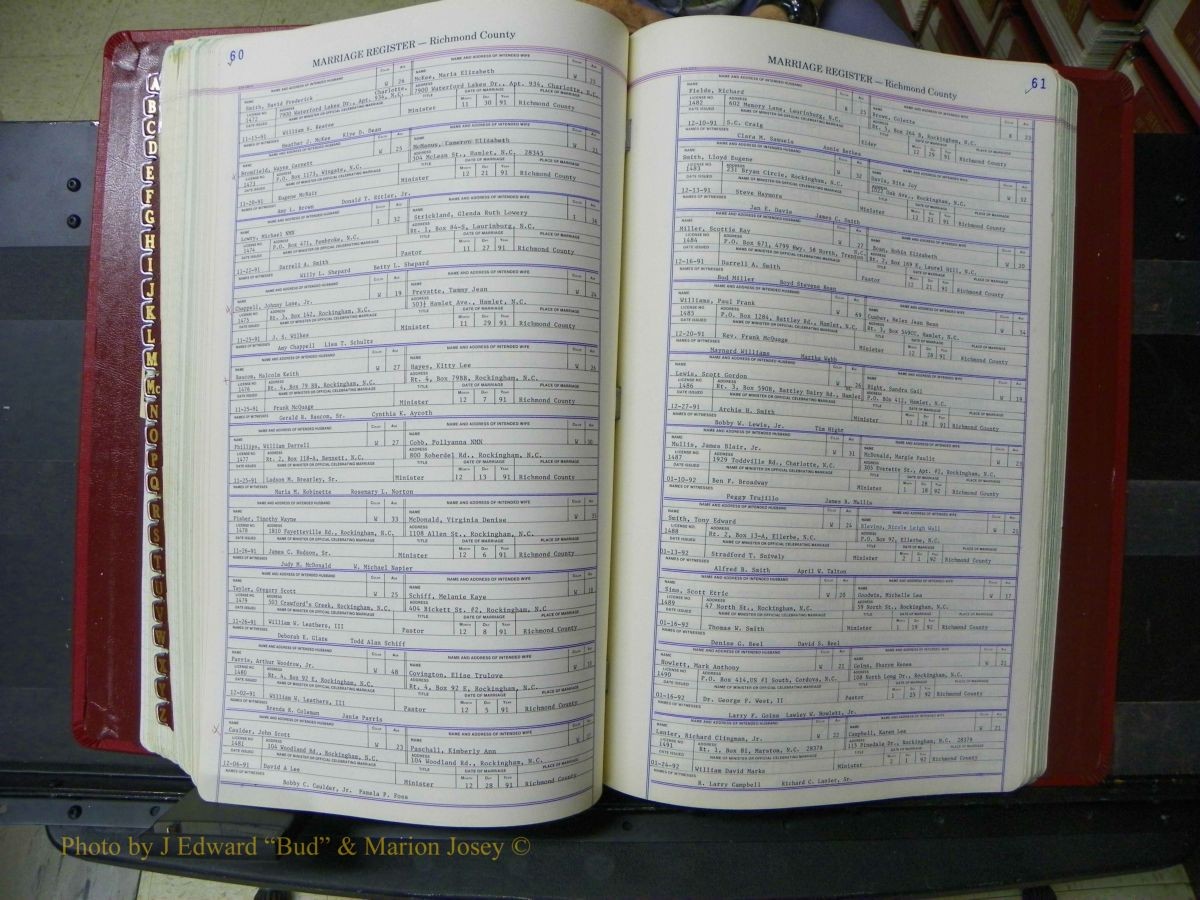 60
MARRIAGE REGISTER — Richmond County
NAME AND ADDRESS OF INTENDED HUSBAND
NAME AND ADDRESS OF INTENDED WIFE
Smith, David Frederick 26
McKee, Maria Elizabeth W 23
1472 7900 Waterford Lakes Dr., Apt. 934, Charlotte, N.C.
7900 Waterford Lakes Dr., Apt. 934, Charlotte, N.C.
11-15-91 William B. Keatee Minister 11 30 91 Richmond County
Heather J. McKee Klye D. Dean
Bromfield, Wayne Garnett W 25
McManus, Cameron Elizabeth W 21
1473 P.O. Box 1173, Wingate, N.C.
304 McLean St., Hamlet, N.C. 28345
11-20-91 Eugene McNair Minister 12 21 91 Richmond County
Amy L. Brown Donald T. Hitler, Jr.
Lowry, Michael NMN I 32
Strickland, Glenda Ruth Lowery I 34
1474 P.O. Box 471, Pembroke, N.C.
Rt. 1, Box 84-S, Laurinburg, N.C.
11-22-91 Darrell A. Smith Pastor 11 27 91 Richmond County
Willy L. Shepard Betty L. Shepard
Chappell, Johnny Lane, Jr. W 19
Prevatte, Tammy Jean W 24
1475 Rt. 3, Box 142, Rockingham, N.C.
503½ Hamlet Ave., Hamlet, N.C.
11-25-91 J. S. Wilkes Minister 11 29 91 Richmond County
Amy Chappell Lisa T. Schultz
Bascom, Malcolm Keith W 27
Hayes, Kitty Lee W 26
1476 Rt. 4, Box 79 BB, Rockingham, N.C.
Rt. 4, Box 79BB, Rockingham, N.C.
11-25-91 Frank McQuage Minister 12 7 91 Richmond County
Gerald R. Bascom, Sr. Cynthia K. Aycoth
Phillips, William Darrell W 27
Cobb, Pollyanna NMN W 30
1477 Rt. 2, Box 118-A, Bennett, N.C.
800 Roberdel Rd., Rockingham, N.C.
11-25-91 Ladson M. Brearley, Sr. Minister 12 13 91 Richmond County
Maria M. Robinette Rosemary L. Norton
Fisher, Timothy Wayne W 33
McDonald, Virginia Denise W 35
1478 1810 Fayetteville Rd., Rockingham, N.C.
1108 Allen St., Rockingham, N.C.
11-26-91 James C. Hudson, Sr. Minister 12 6 91 Richmond County
Judy M. McDonald W. Michael Napier
Taylor, Gregory Scott W 25
Schiff, Melanie Kaye W 18
1479 503 Crawford's Creek, Rockingham, N.C.
404 Rickett St., #2, Rockingham, N.C.
11-26-91 William W. Leathers, III Pastor 12 8 91 Richmond County
Deborah E. Glass Todd Alan Schiff
Parris, Arthur Woodrow, Jr. W 48
Covington, Elise Trulove W 33
1480 Rt. 4, Box 92 E, Rockingham, N.C.
Rt. 4, Box 92 E, Rockingham, N.C.
12-02-91 William W. Leathers, III Pastor 12 5 91 Richmond County
Brenda R. Coleman Janie Parris
Caulder, John Scott W 23
Paschall, Kimberly Ann
1481 104 Woodland Rd., Rockingham, N.C.
104 Woodland Rd., Rockingham, N.C.
12-06-91 David A Lee Minister 12 28 91 Richmond County
Bobby C. Caulder, Jr. Pamela P. Foss
A
B
C
D
E
F
G
H
I
J
K
L
M
Mc
N
O
P
Q
R
S
T
U
V
W
X
Y
Z
61
MARRIAGE REGISTER — Richmond County
NAME AND ADDRESS OF INTENDED HUSBAND
NAME AND ADDRESS OF INTENDED WIFE
Fields, Richard B 25
Brown, Coletta B 23
1482 602 Memory Lane, Laurinburg, N.C.
Rt. 5, Box 264 B, Rockingham, N.C.
12-10-91 S.C. Craig Elder 12 29 91 Richmond County
Clara M. Samuels Annie Bethea
Smith, Lloyd Eugene W 32
Davis, Rita Joy W 32
1483 231 Bryan Circle, Rockingham, N.C.
Oak Ave., Rockingham, N.C.
12-13-91 Steve Haymore Minister 12 21 91 Richmond County
Jan E. Davis James C. Smith
Miller, Scottie Ray W 27
Bean, Robin Elizabeth W 20
1484 P.O. Box 671, 4799 Hwy. 56 North, Trenton
Rt. 2, Box 169 E, Laurel Hill, N.C.
12-16-91 Darrell A. Smith Pastor 12 21 91 Richmond County
Bud Miller Boyd Stevens Bean
Williams, Paul Frank W 69
Cumber, Helen Jean Bean W 54
1485 P.O. Box 1284, Battley Rd., Hamlet, N.C.
Rt. 3, Box 549CC, Hamlet, N.C.
12-20-91 Rev. Frank McQuage Minister 12 28 91 Richmond County
Maynard Williams Martha Webb
Lewis, Scott Gordon W 26
Hight, Sandra Gail W 19
1486 Rt. 3, Box 590B, Battley Dairy Rd., Hamlet
P.O. Box 412, Hamlet, N.C.
12-27-91 Archie H. Smith Minister 12 28 91 Richmond County
Bobby W. Lewis, Jr. Tim Hight
Mullis, James Blair, Jr. W 31
McDonald, Margie Faultt W 23
1487 1929 Toddville Rd., Charlotte, N.C.
305 Everette St., Apt. #1, Rockingham, N.C.
01-10-92 Ben F. Broadway Minister 1 18 92 Richmond County
Peggy Trujillo James B. Mullis
Smith, Tony Edward W 24
Blevins, Nicole Leigh Wall W 21
1488 Rt. 2, Box 13-A, Ellerbe, N.C.
P.O. Box 92, Ellerbe, N.C.
01-13-92 Stradford T. Snively Minister 2 1 92 Richmond County
Alfred B. Smith April W. Talton
Sims, Scott Etric W 20
Goodwin, Michelle Lea W 17
1489 47 North St., Rockingham, N.C.
59 North St., Rockingham, N.C.
01-16-92 Thomas W. Smith Minister 1 19 92 Richmond County
Denise G. Reel David S. Reel
Howlett, Mark Anthony W 21
Goins, Sharon Renea W 21
1490 P.O. Box 414, US #1 South, Cordova, N.C.
108 North Long Dr., Rockingham, N.C.
01-16-92 Dr. George F. West, II Pastor 1 25 92 Richmond County
Larry F. Goins Lawley W. Howlett, Jr.
Lanier, Richard Clingman, Jr. W 22
Campbell, Karen Lea W 21
1491 Rt. 1, Box 81, Marston, N.C. 28378
115 Pinedale Dr., Rockingham, N.C. 28379
01-24-92 William David Marks Minister 2 1 92 Richmond County
R. Larry Campbell Richard C. Lanier, Sr.
Photo by J Edward “Bud” & Marion Josey ©